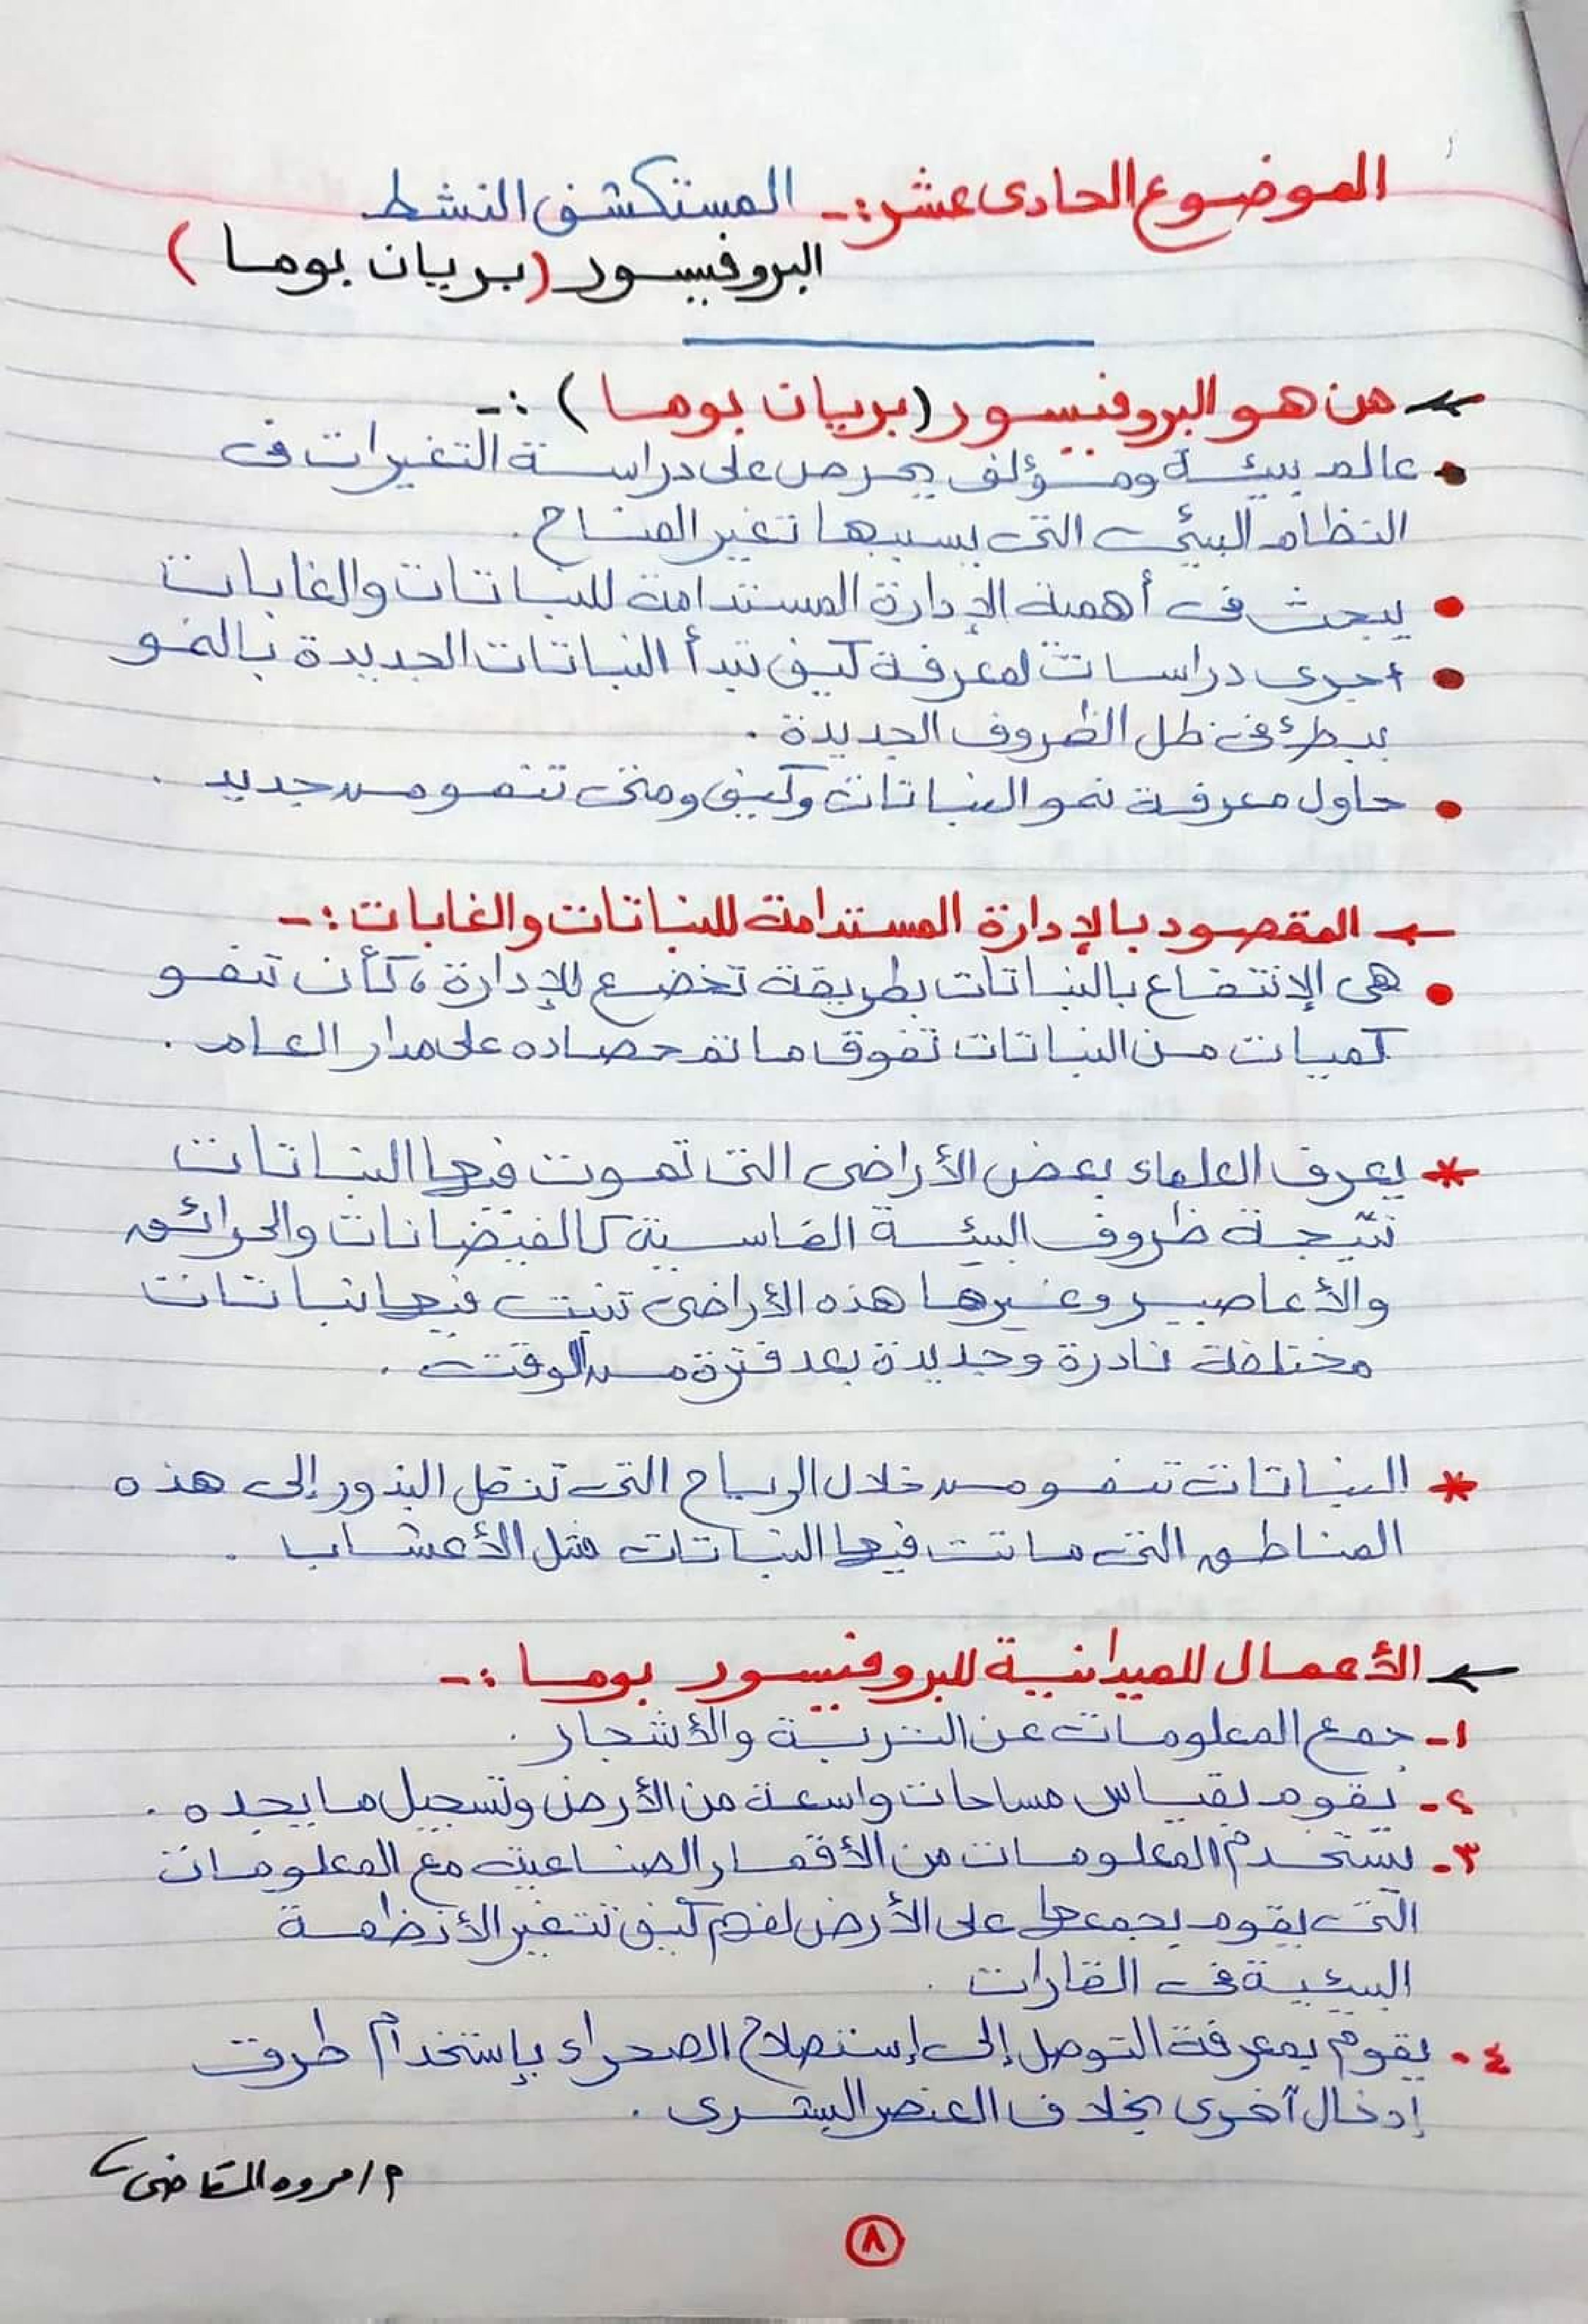 الموضوع الحادى عشر :- المستكشف النشط
البروفيسور (بريان بوما)
من هو البروفيسور (بريان بوما) :-
• عالم بيئة ومؤلف يحرص على دراسة التغيرات فى
النظام البيئى التى يسببها تغير المناخ.
• يبحث فى أهمية الإدارة المستدامة للنباتات والغابات
• أجرى دراسات لمعرفة كيف تبدأ النباتات الجديدة بالنمو
ببطئ فى ظل الظروف الجديدة .
• حاول معرفة نمو النباتات وكيف ومتى تنمو من جديد .
← المقصود بالإدارة المستدامة للنباتات والغابات :-
• هى الإنتفاع بالنباتات بطريقة تخضع للإدارة ، كأن تنمو
كميات من النباتات تفوق ما تم حصاده على مدار العام .
* يعرف العلماء بعض الأراضى التى تموت فيها النباتات
نتيجة ظروف البيئة القاسية كالفيضانات والحرائق
والأعاصير وغيرها هذه الأراضى تنبت فيها نباتات
مختلفة نادرة وجديدة بعد فترة من الوقت .
* النباتات تنمو من خلال الرياح التى تنقل البذور إلى هذه
المناطق التى ماتت فيها النباتات مثل الأعشاب .
← الأعمال الميدانية للبروفيسور بوما :-
١- جمع المعلومات عن التربة والأشجار .
٢- يقوم بقياس مساحات واسعة من الأرض وتسجيل ما يجده .
٣- يستخدم المعلومات من الأقمار الصناعية مع المعلومات
التى يقوم بجمعها على الأرض لفهم كيف تتغير الأنظمة
البيئية فى القارات .
٤- يقوم بمعرفة التوصل إلى إستصلاح الصحراء بإستخدام طرق
إدخال أخرى بخلاف العنصر البشرى .
م/ مروه القاضى
٨